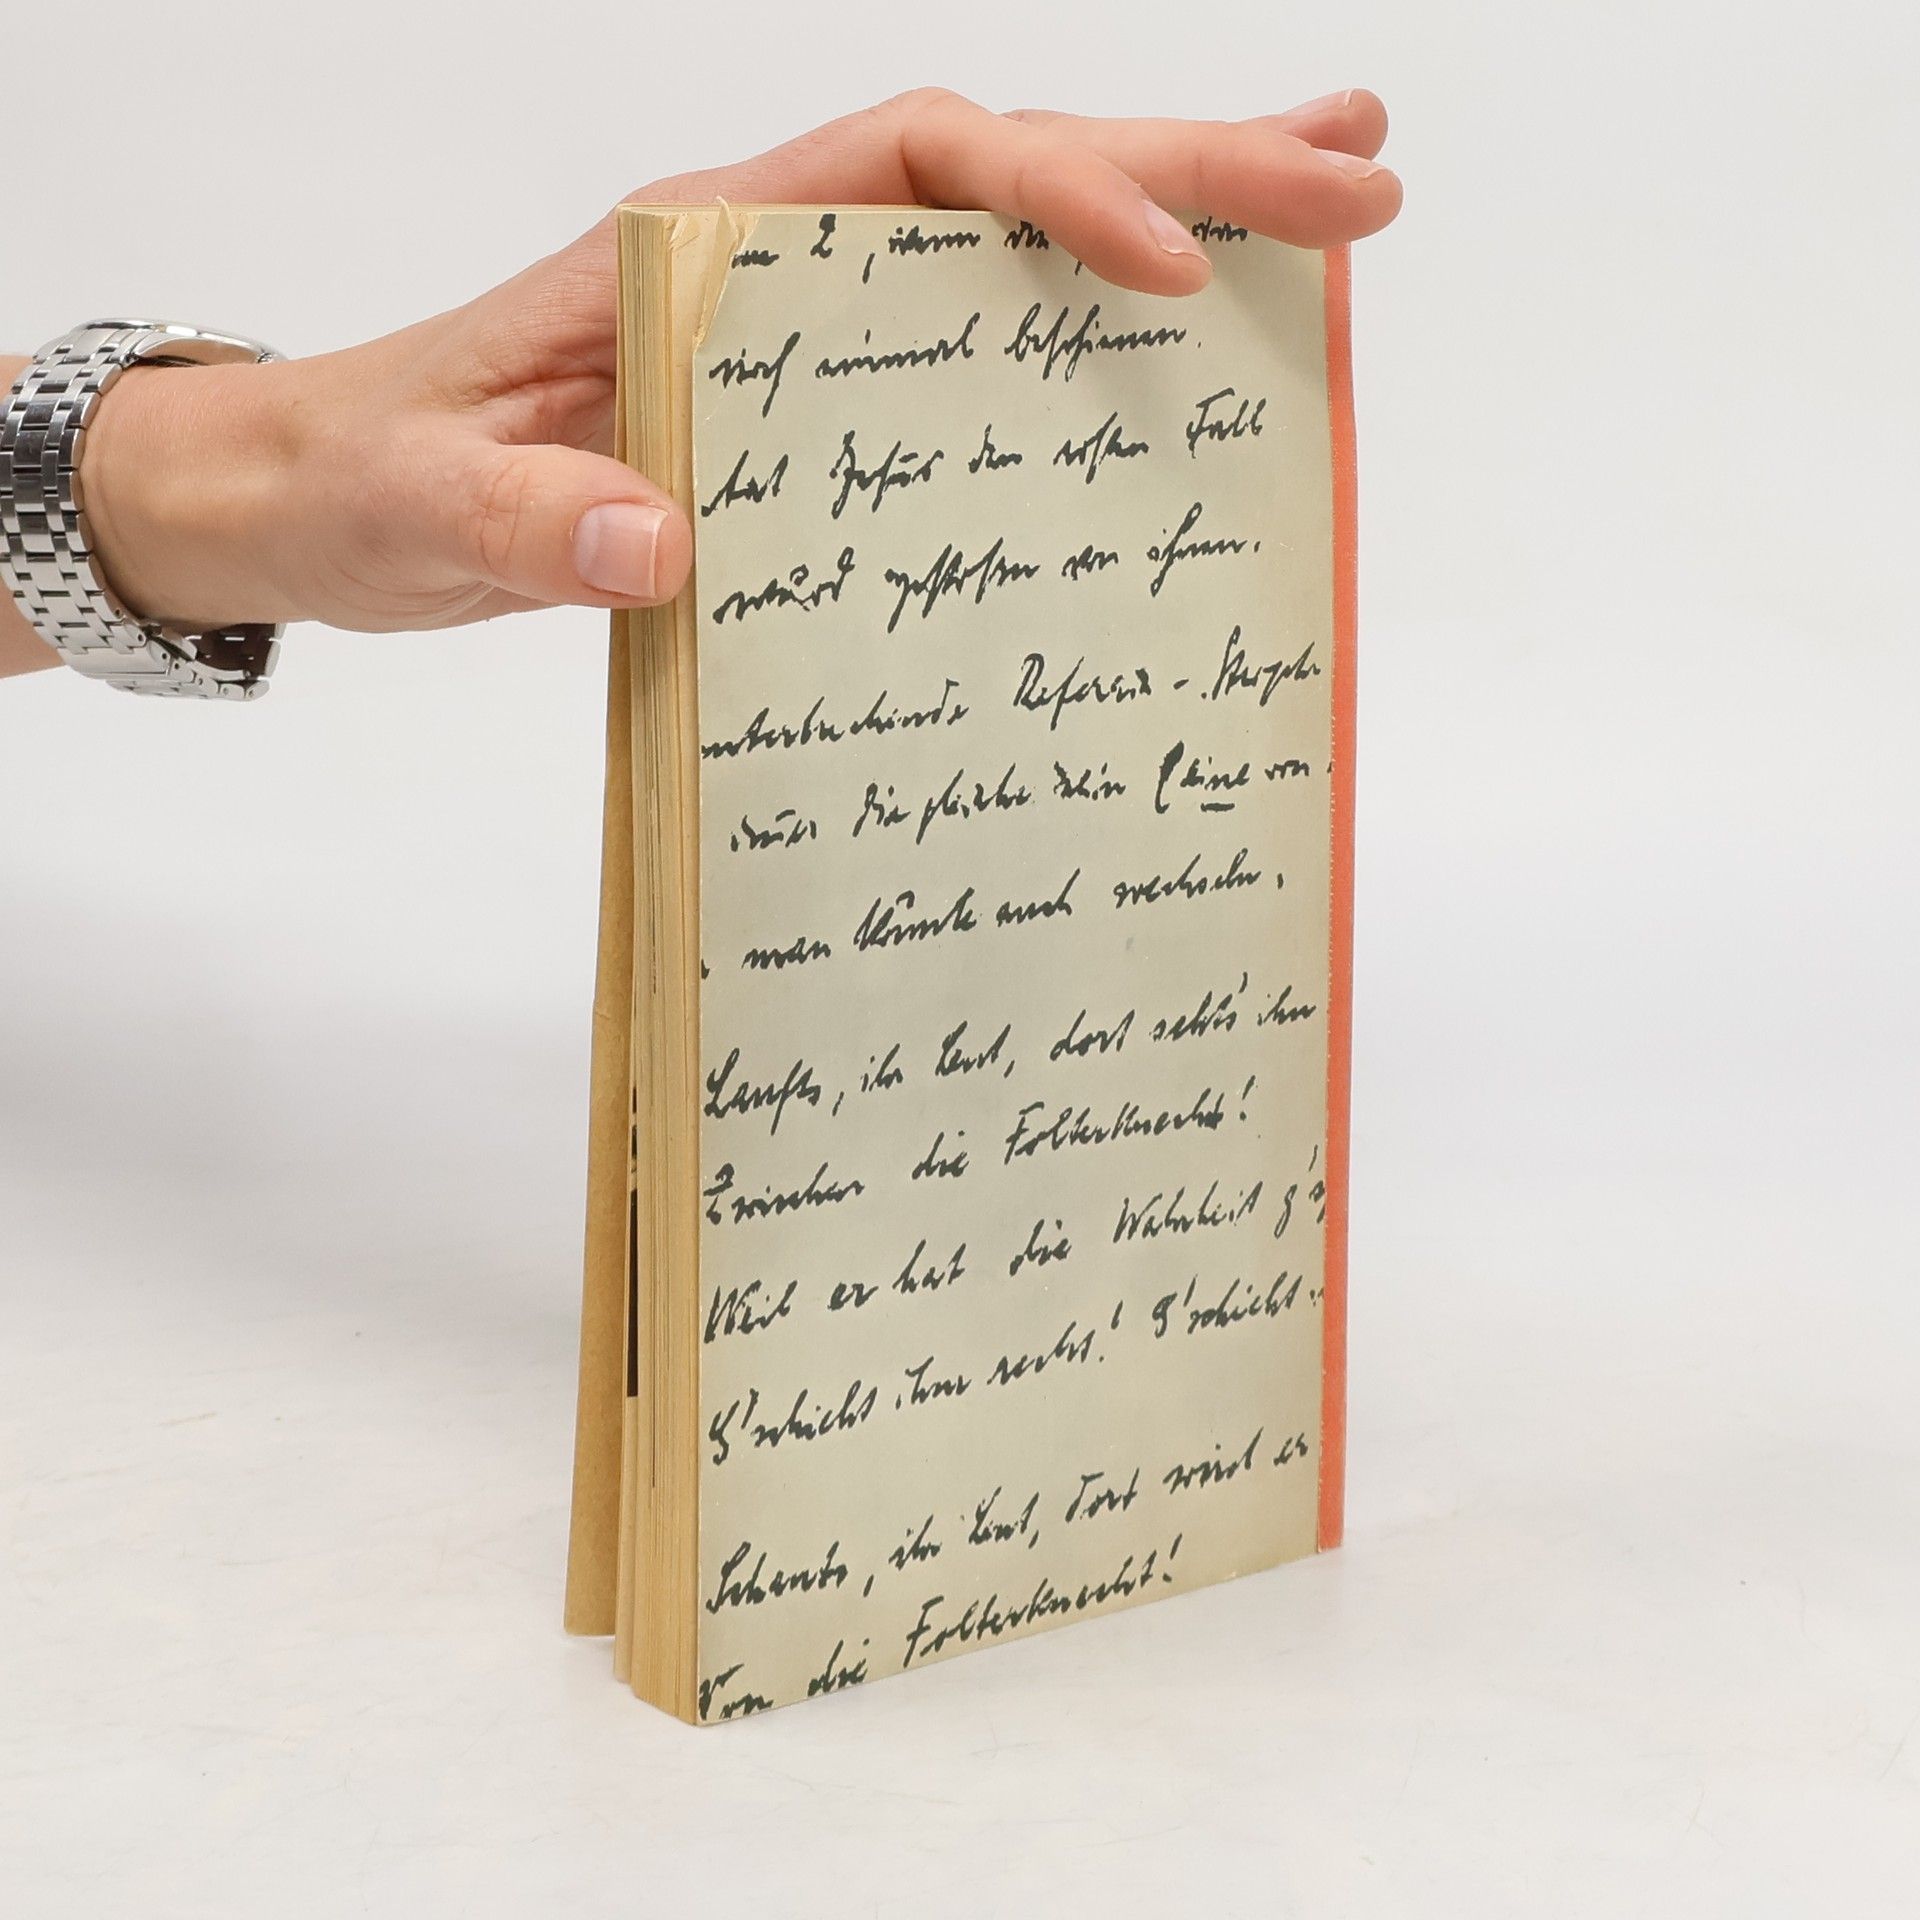 2, wenn
noch einmal beschienen.
tat Jesus den ersten Fall
wurd gestoßen von ihnen.
unterbrechende Refrain -
die gleiche sein (eine von
man könnte auch wechseln.
Laufts, ihr Leut, dort sehts' ihn
Zwischen die Folterknecht!
Weil er hat die Wahrheit g's
G'schieht ihm recht! G'schieht
Schauts, ihr Leut, dort wird er
Von die Folterknecht!